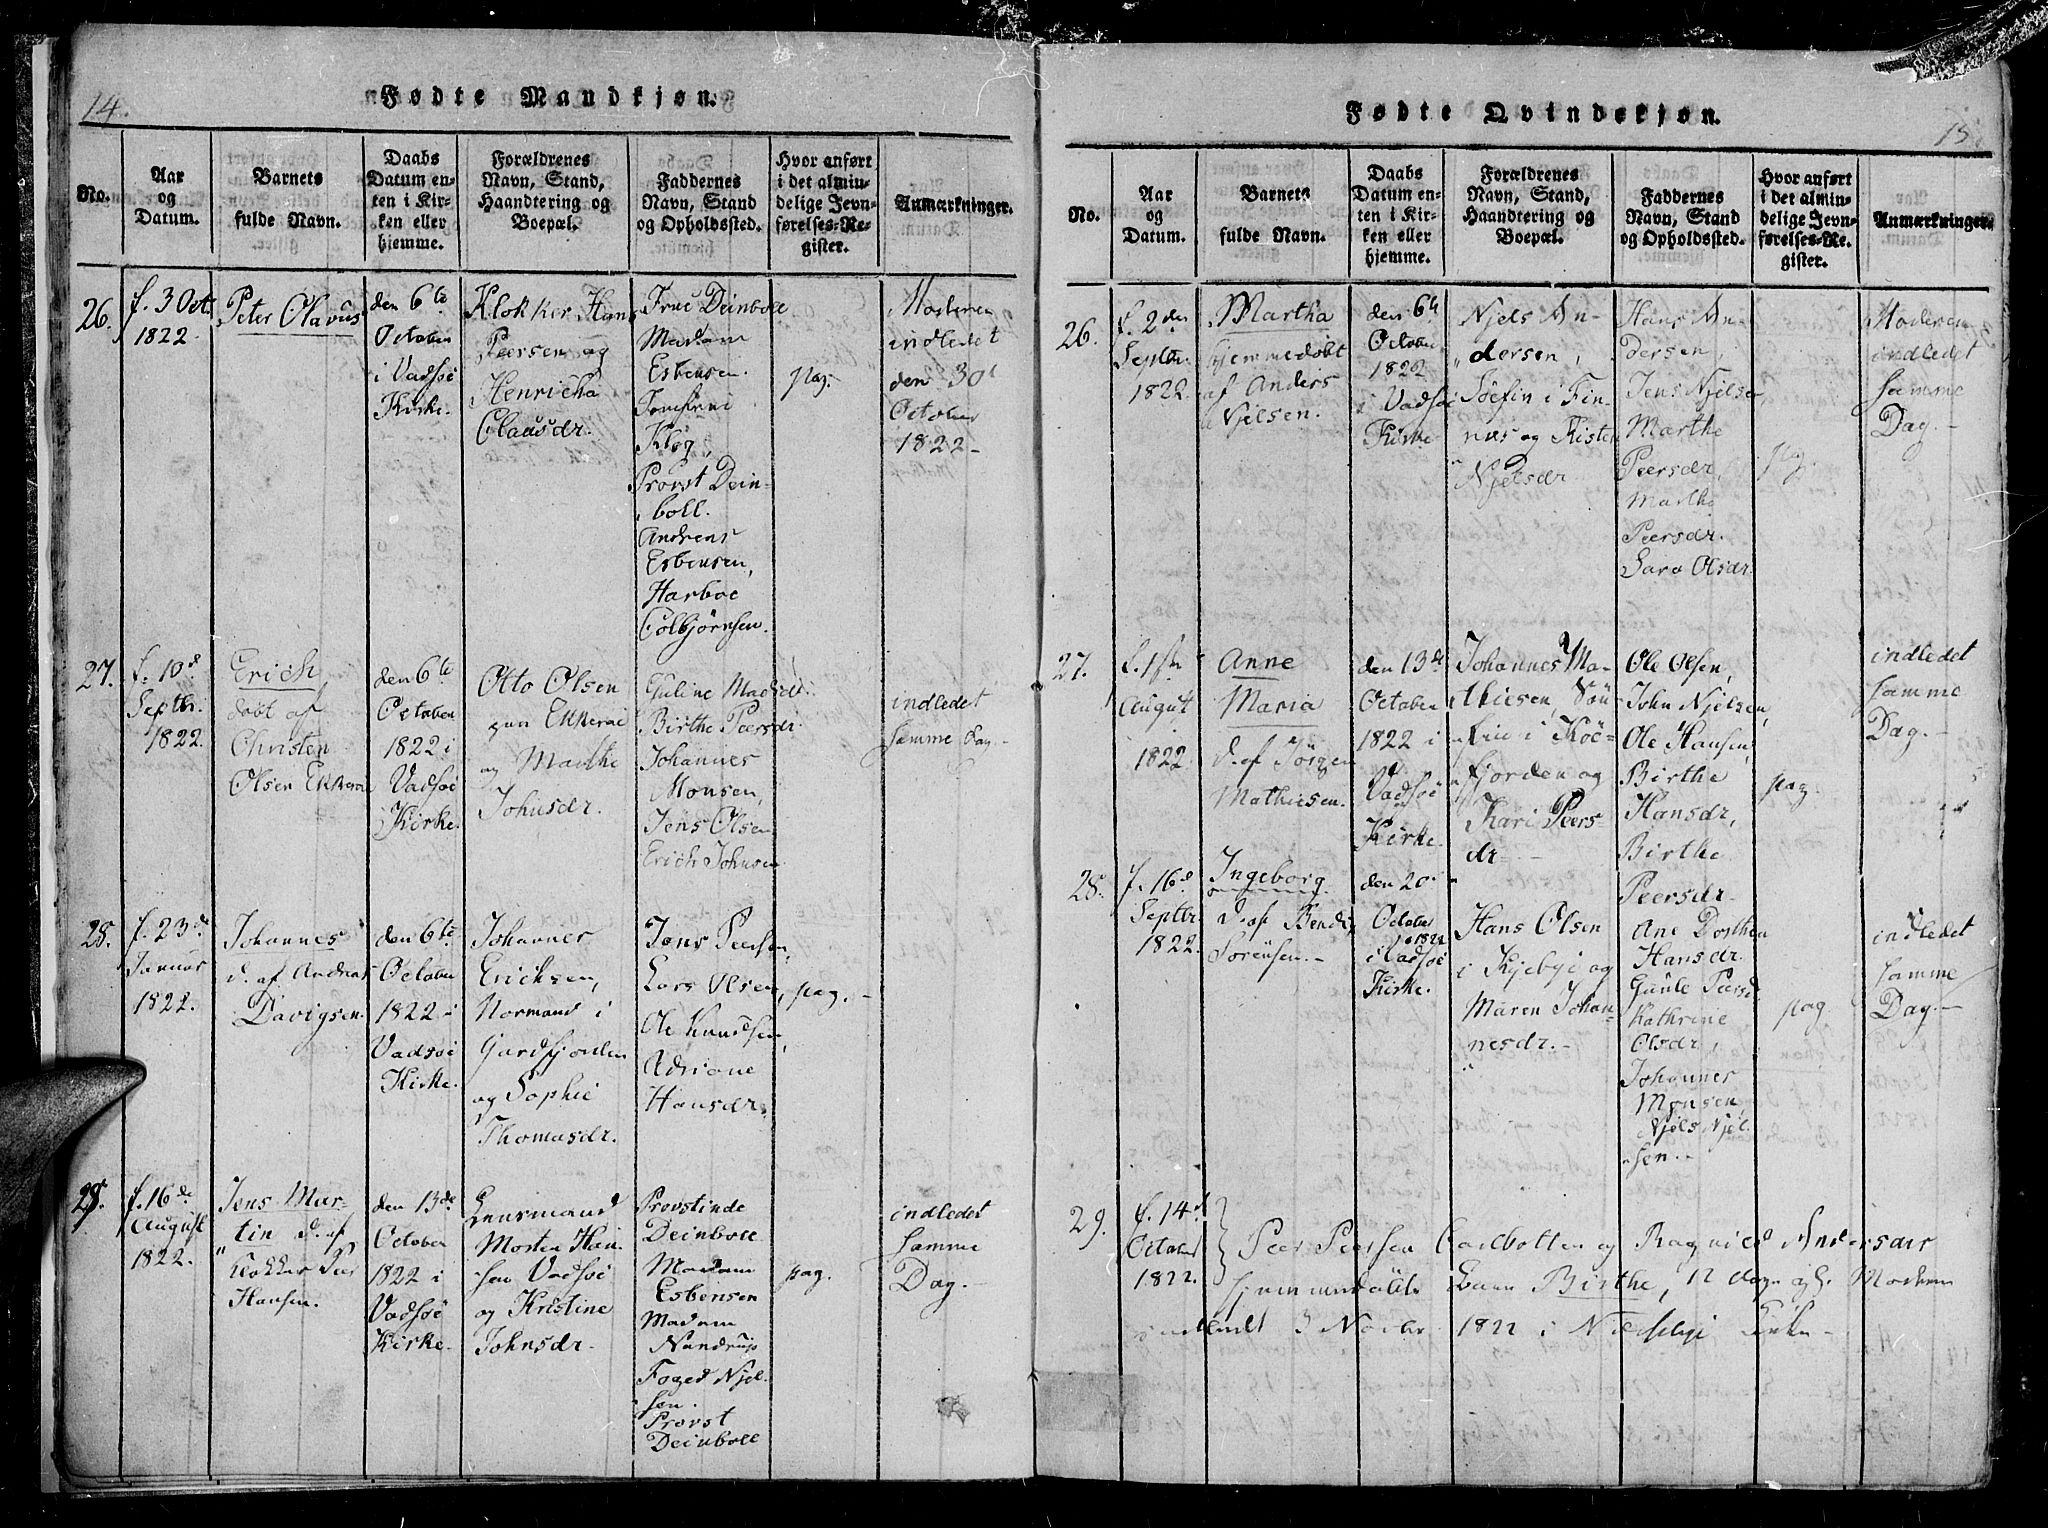 14.
Fødte Mandkjøn.
No.
Aar
og
Datum.
Barnets
fulde Navn.
Daabs
Datum en-
ten i Kir-
ken eller
hjemme.
Forældrenes
Navn, Stand,
Haandtering og
Boepæl.
Faddernes
Navn, Stand
og Opholdssted.
Hvor anført
i det almin-
delige Jevn-
førelses-Re-
gister.
Anmærkninger.
26.
f. 3 Oct.
1822.
Peter Olavus
den 6te
October
i Vadsöe
Kirke.
Klokker Hans
Peersen og
Henricha
Clausdr.
Frue Deinboll
Madam
Esbensen.
Jomfrue
Klog,
Provst Dein-
boll.
Andreas
Esbensen,
Harboe
Colbjörnsen.
pag.
Moderen
indledet
den 30t
October
1822 -
27.
f. 10d
Septbr.
1822.
Erich
döbt af
Christen
Olsen Ekkeröe
den 6te
October
1822 i
Vadsöe
Kirke.
Otto Olsen
paa Ekkeröe
og Marthe
Johnsdr.
Guline Madsdr
Birthe Peersdr.
Johannes
Monsen,
Jens Olsen
Erich Johnsen
indledet
samme Dag -
28.
f. 23d
Januar
1822.
Johannes
d. af Andreas
Davigsen
den 6te
October
1822 -
Vadsöe
Kirke.
Johannes
Ericksen,
Normand i
Gardsfjorden
og Sophie
Thomasdr.
Jens Peersen,
Lars Olsen,
Ole Knudsen,
Adriane
Hansdr.
pag. -
29.
f. 16de
August
1822.
Jens Mar-
tin d. af
Klokker Peer
Hansen.
den 13de
October
1822 i
Vadsöe
Kirke.
Lensmand
Morten Han-
sen Vadsöe
og Kristine
Johnsdr.
Provstinde
Deinboll
Madam
Esbensen
Madam
Nandrup
Foged Njel-
sen.
Provst
Deinboll
pag.
indledet
samme
Dag. -
15.
Fødte Qvindekjøn.
No.
Aar
og
Datum.
Barnets
fulde Navn.
Daabs
Datum en-
ten i Kir-
ken eller
hjemme.
Forældrenes
Navn, Stand,
Haandtering og
Boepæl.
Faddernes
Navn, Stand
og Opholdssted.
Hvor anført
i det almin-
delige Jevn-
førelses-Re-
gister.
Anmærkninger.
26.
f. 2den
Septbr.
1822.
Martha
hjemmedöbt
af Anders
Njelsen.
den 6te
October
1822
i Vadsöe
Kirke
Njels An-
dersen,
Söefin i Fin-
næs og Kisten
Njelsdr
Hans An-
dersen,
Jens Njelsen
Marthe
Peersdr,
Marthe
Peersdr.
Sara Olsdr.
pag.
Moderen
indledet
samme
Dag. -
27.
f. 1ste
August
1822.
Anne
Maria
d. af Jörgen
Mathiesen.
den 13de
October
1822 i
Vadsöe
Kirke.
Johannes Ma-
thiesen, Söe-
fin i Köe-
fjorden og
Kari Peers-
dr -
Ole Olsen,
John Njelsen,
Ole Hansen,
Birthe
Hansdr,
Birthe
Peersdr.
pag.
indledet
samme
Dag. -
28.
f. 16d
Septbr.
1822.
Ingeborg
d. af Bendix
Sörensen. -
den 20
October
1822
i Vadsöe
Kirke.
Hans Olsen
i Kjebyi og
Maren Johan-
nesdr. -
Ane Dorthea
Hansdr.
Gunle Peersd.
Kathrine
Olsdr,
Johannes
Monsen,
Njels Njel-
sen. -
pag
indledet
samme
Dag. -
29.
f. 14d
October
1822.
Peer Peersen Carlbotten og Ragnild Andersdr
hjemmedöbte Barn Birthe, 12 dage gl. Moderen
indledt 3 Novbr 1822 i Næsebye Kirke -